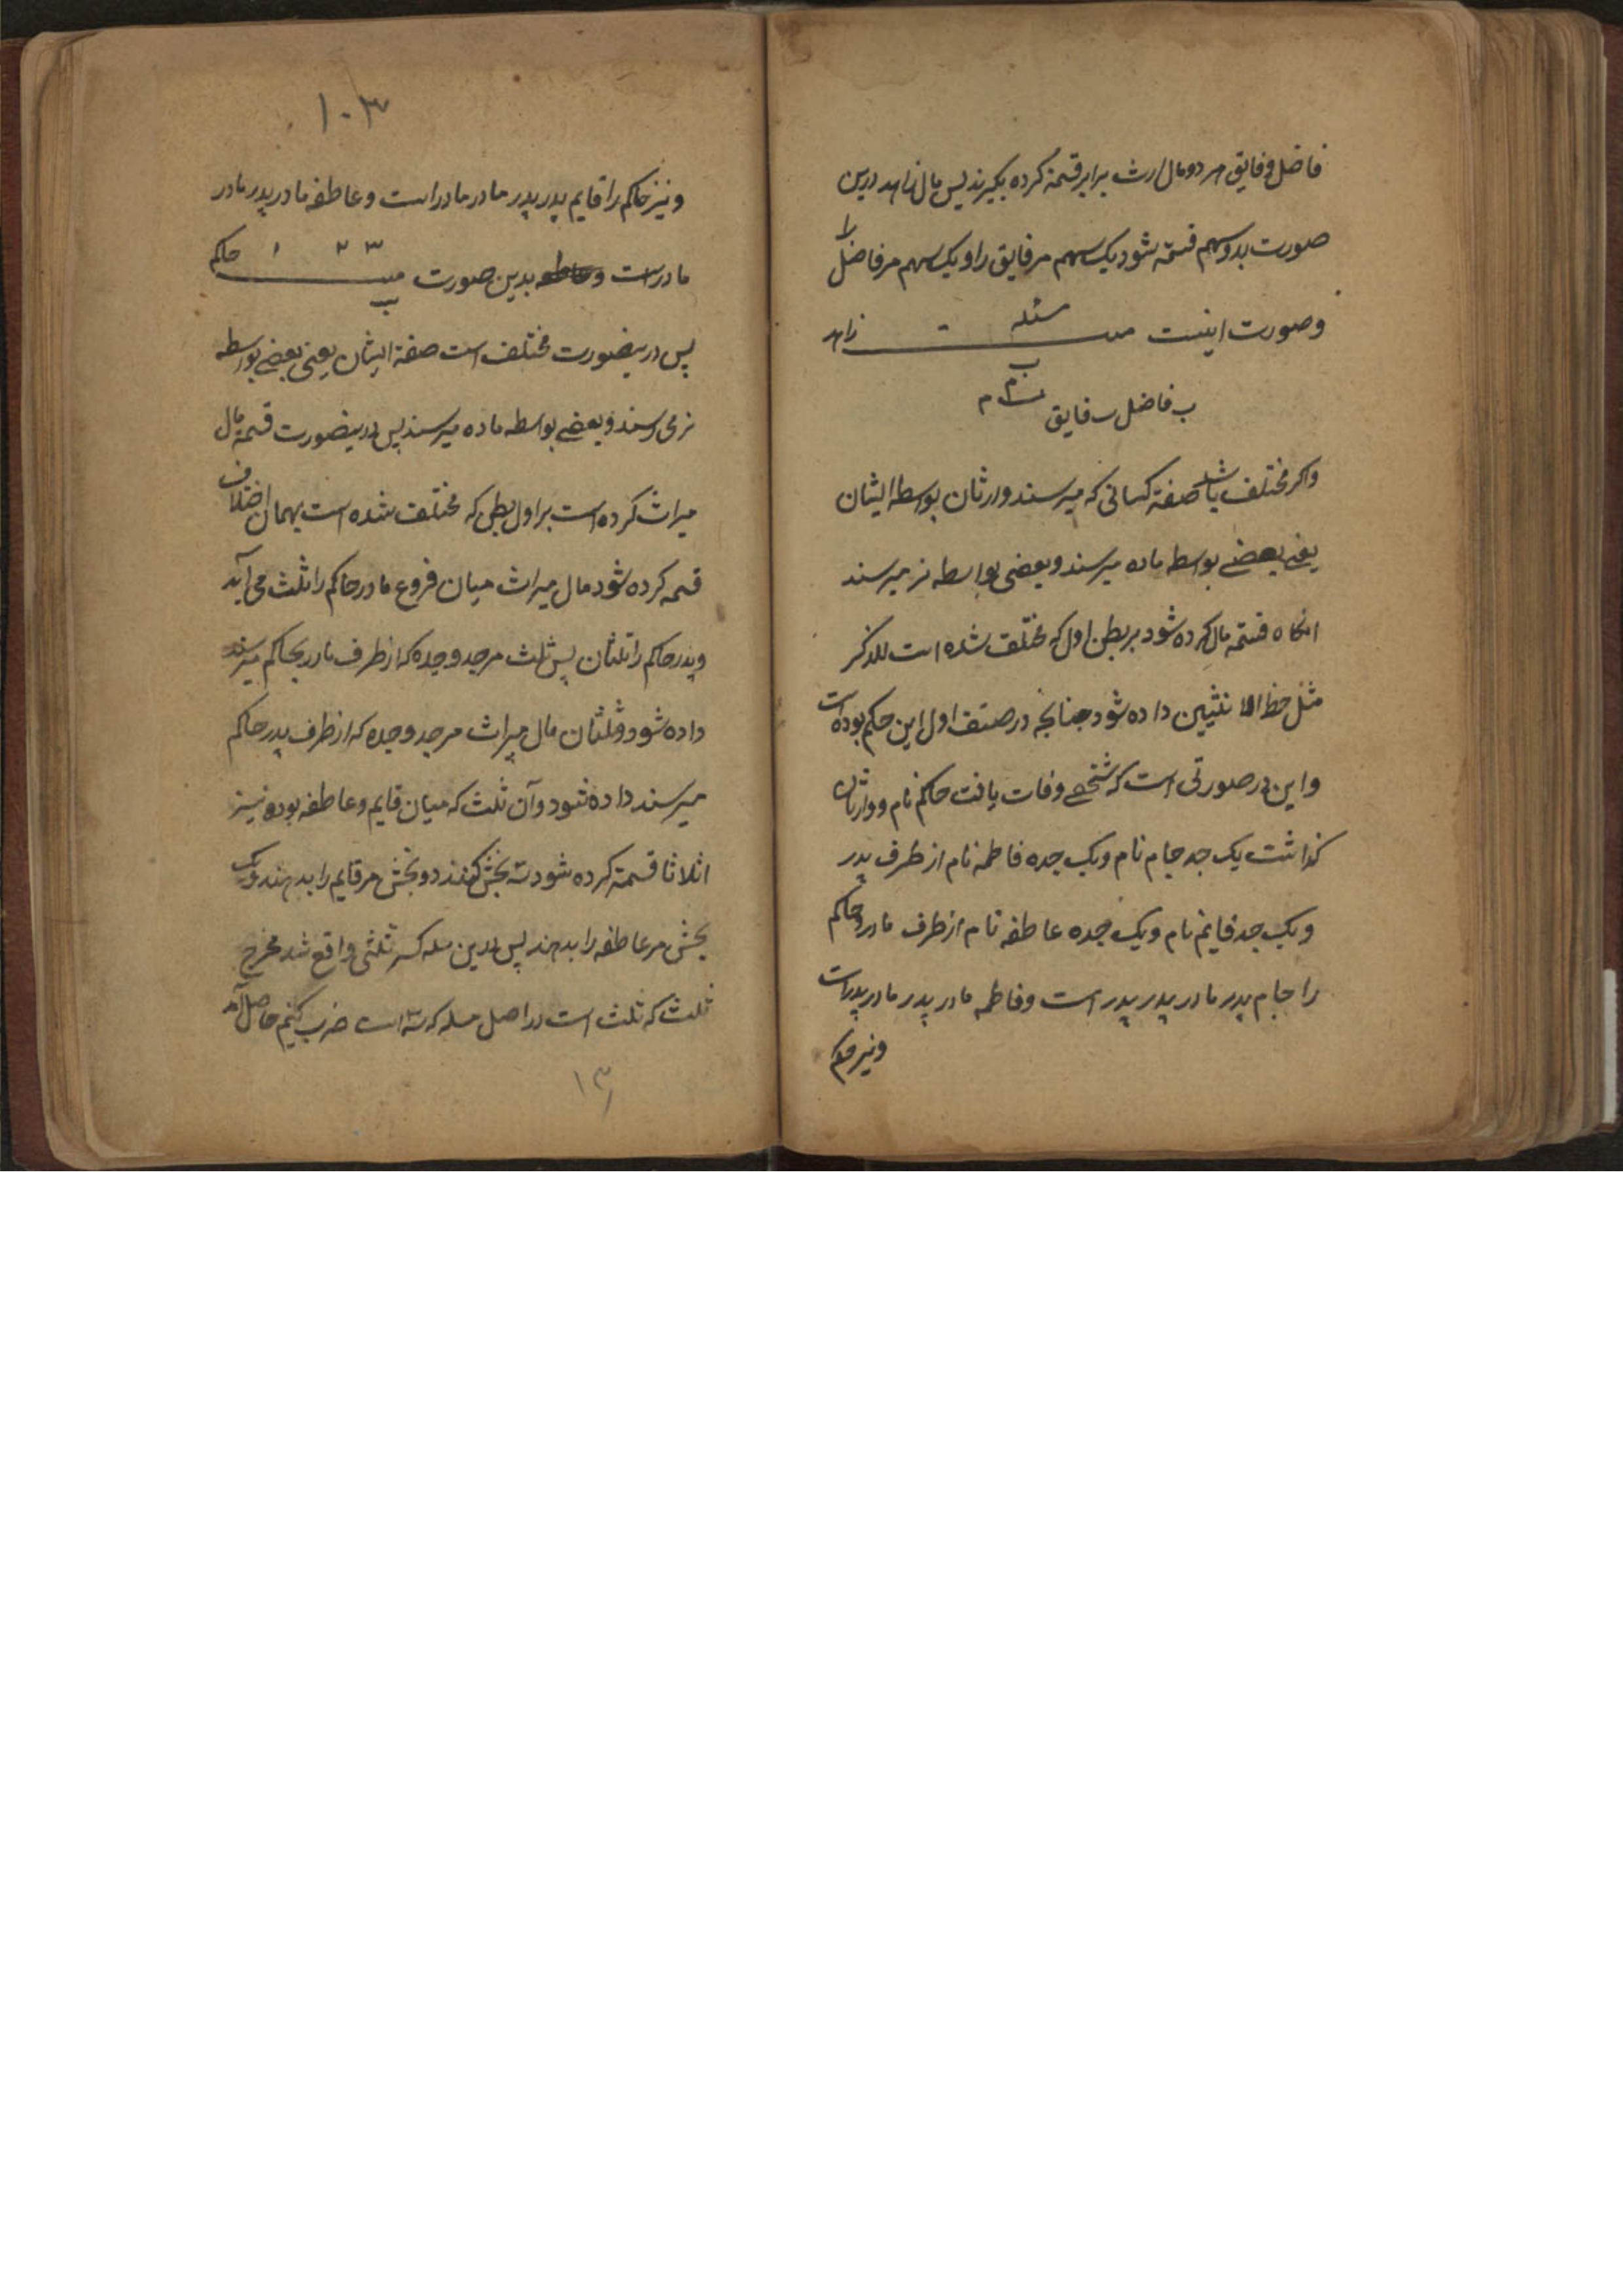 فاضل و فایق هر دو مال ارث برابر قسمة کرده بکیرند پس مال زاهد درین
صورت بدو سهم قسمة شود یک سهم مر فایق را و یک سهم مر فاضل را
و صورت اینست مسئله زاهد
ب فاضل ب فایق
واکر مختلف باشد صفة کسانی که میرسند وارثان بوسطه ایشان
یعنی بعضے بوسطه ماده میرسند و بعضی بواسطه نر میرسند
انکاه قسمة مال کرده شود بر بطن اول که مختلف شده است للذکر
مثل حظ الانثیین داده شود چنانچه در صنف اول این حکم بوده است
و این در صورتی است که شخصے وفات یافت حاکم نام و وارثان
کذاشت یک جد جام نام و یک جده فاطمه نام از طرف پدر
و یک جد قایم نام و یک جده عاطفه نام از طرف مادر و حاکم
را جام پدر مادر پدر پدر است و فاطمه مادر پدر مادر پدراست
و نیز حاکم
۱۰۳
و نیز حاکم را قایم پدر پدر مادر مادر است و عاطفه مادر پدر مادر
مادرست و عاطفه بدین صورت میـــت حاکم
پس درینصورت مختلف است صفة ایشان یعنی بعضے بواسطه
نر می رسند و بعضے بواسطه ماده میرسند پس درینصورت قسمة مال
میراث کرده است بر اول بطن که مختلف شده است بهمان اختلاف
قسمه کرده شود مال میراث میان فروع مادر حاکم را ثلث می آید
و پدر حاکم را ثلثان پس ثلث مر جد و جده که از طرف مادر بحاکم میرسند
داده شود و ثلثان مال میراث مر جد و جده که از طرف پدر حاکم
میرسند داده شود و آن ثلث که میان قایم و عاطفه بوده نیز
اثلاثا قسمة کرده شود سه بخش کنند دو بخش مر قایم را بدهند و یک
بخش مر عاطفه را بدهند پس درین مسله کسر ثلثی واقع شد مخرج
ثلث که ثلث است در اصل مسله که سه است ضرب کنیم حاصل آمد
۱۳